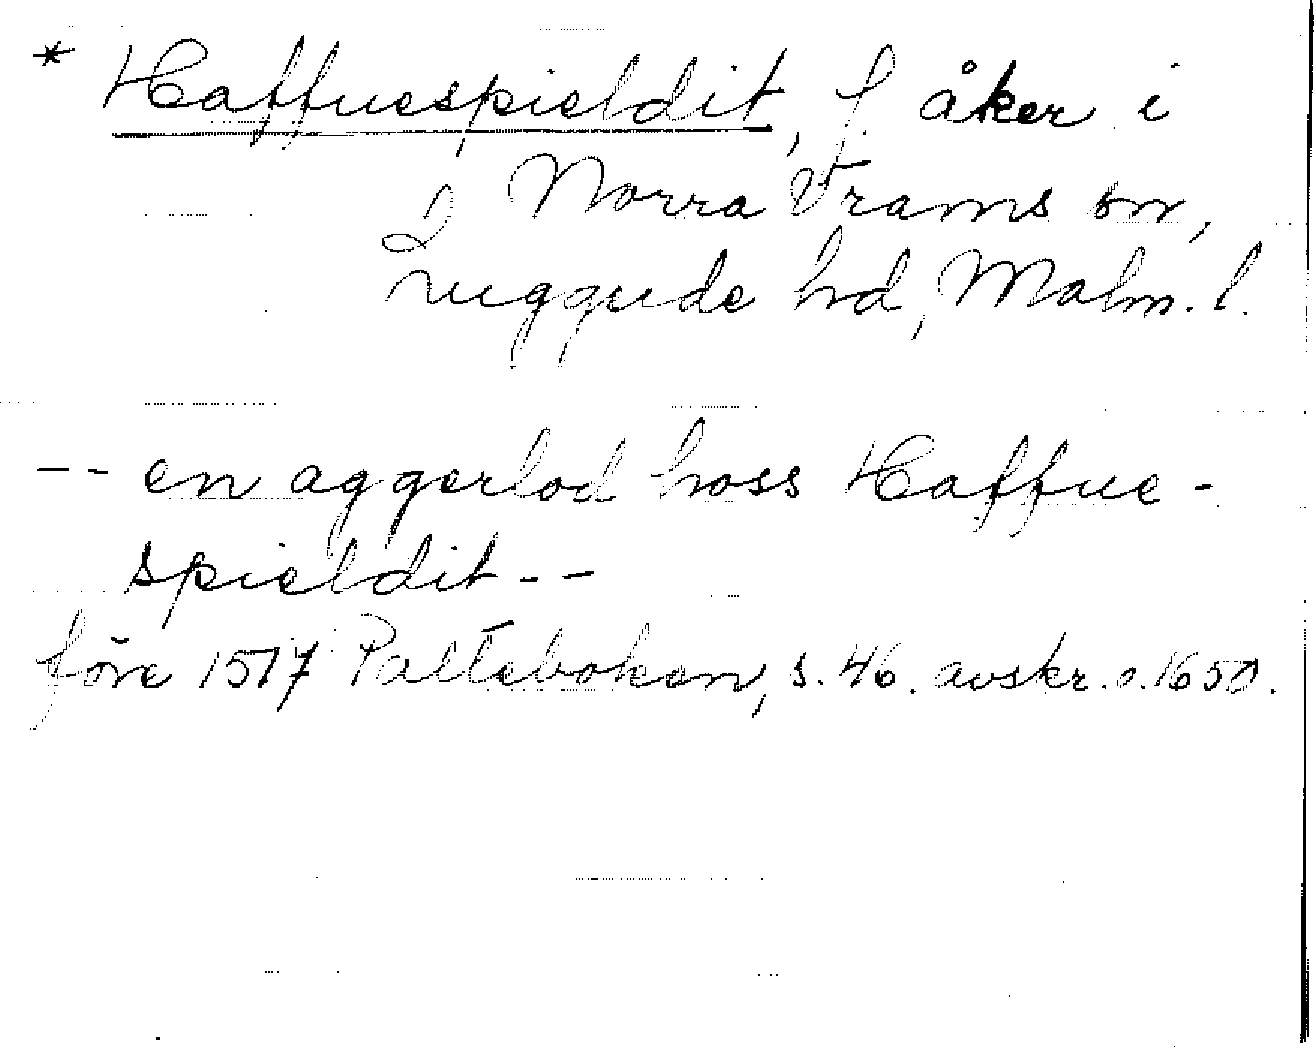 * Haffuespieldit, f. åker i
Norra Vrams sn,
Luggude hd, Malm. l.
-- en aggerlod hoss Haffue-
spieldit --
före 1517 Palteboken, s. 46. avskr. o. 1650.